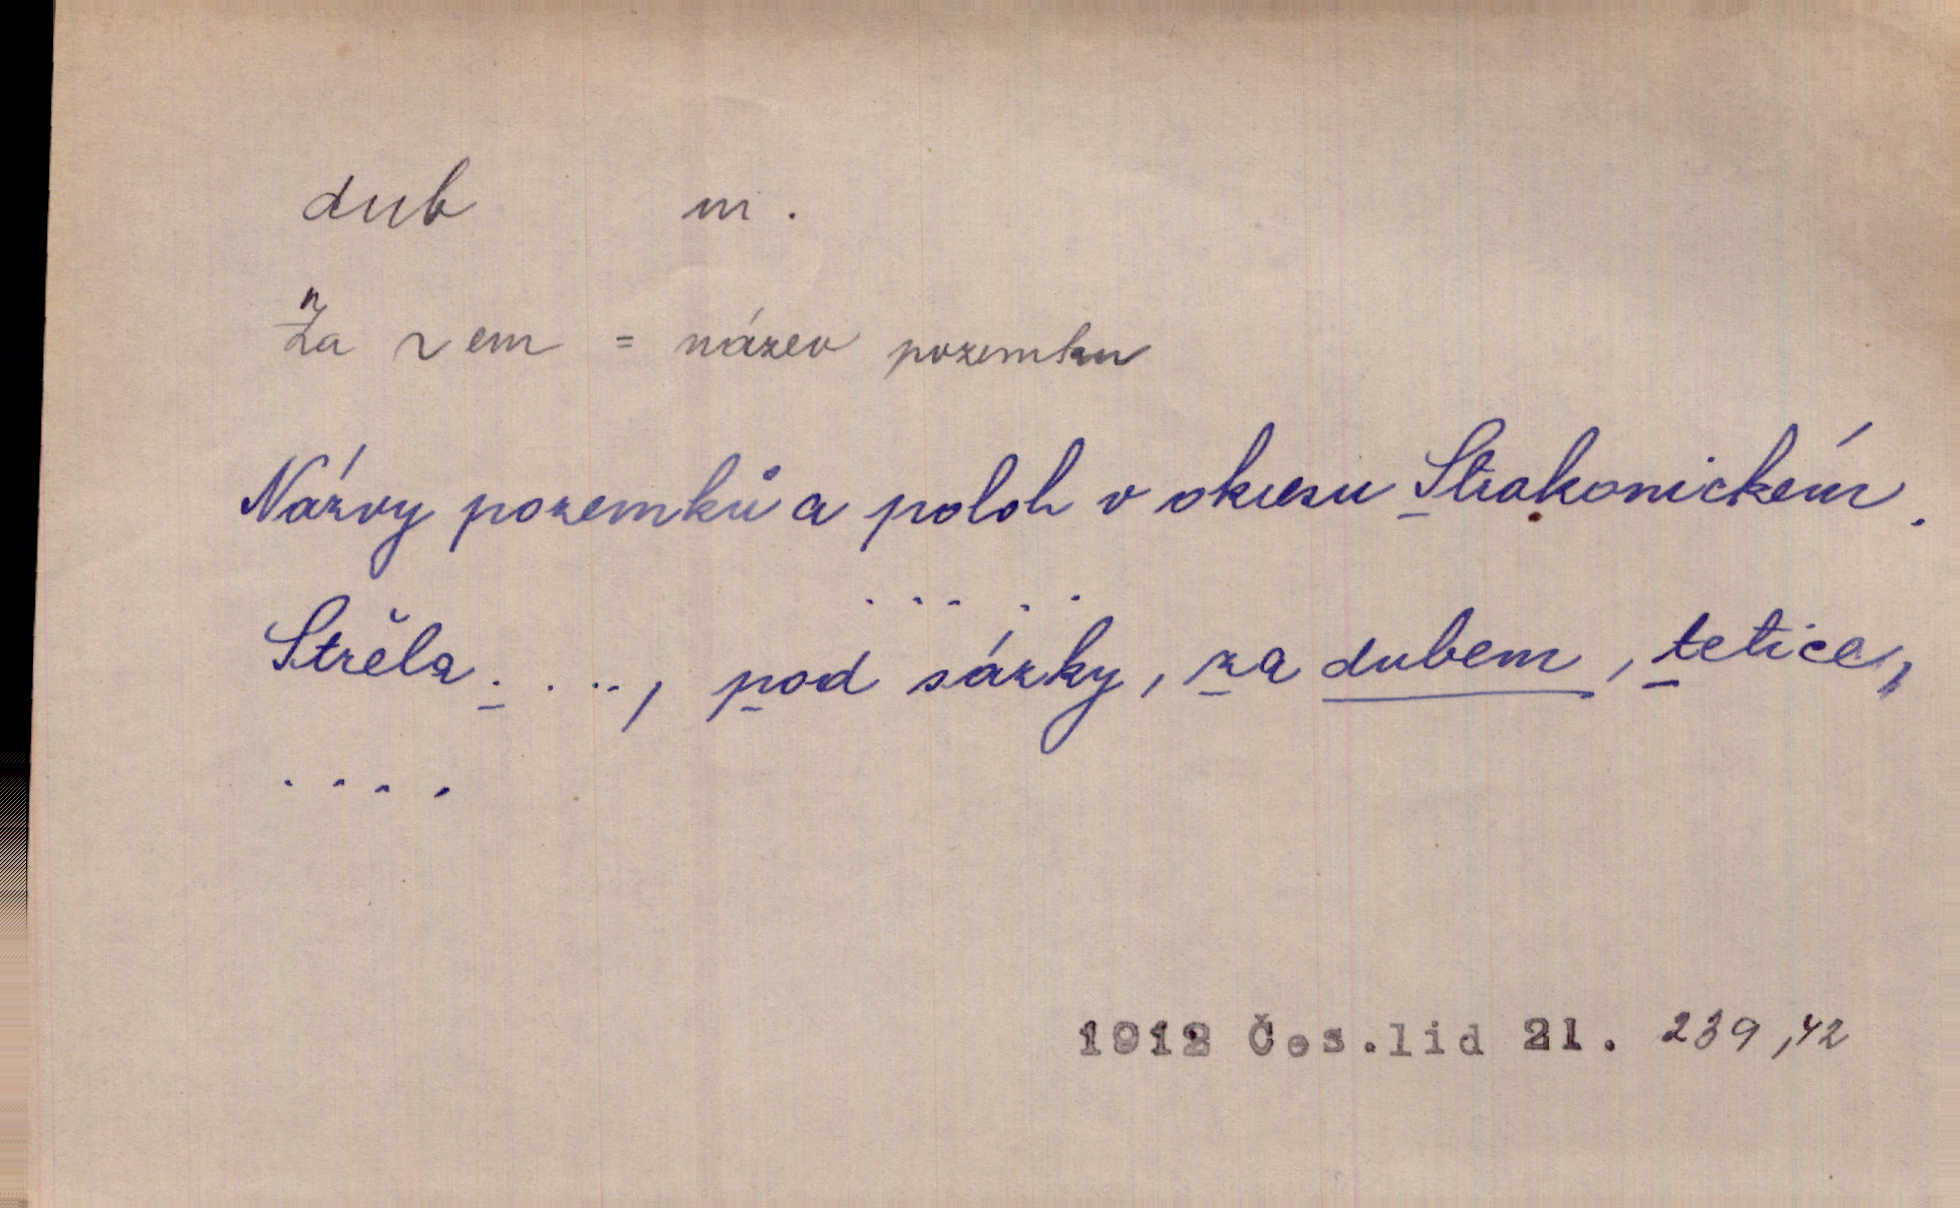 dub m.
Za ~ em = název pozemku
Názvy pozemků a poloh v okresu Strakonickém.
. . . . .
Strěla . . . ., pod sázky, za dubem, tetice,
. . . .
1912 Čes.lid 21. 239,42